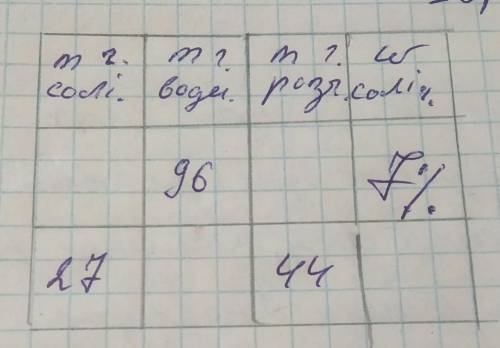 m г. m г. m г. w
солі. води. розч. солі %.
96 7%
27 44